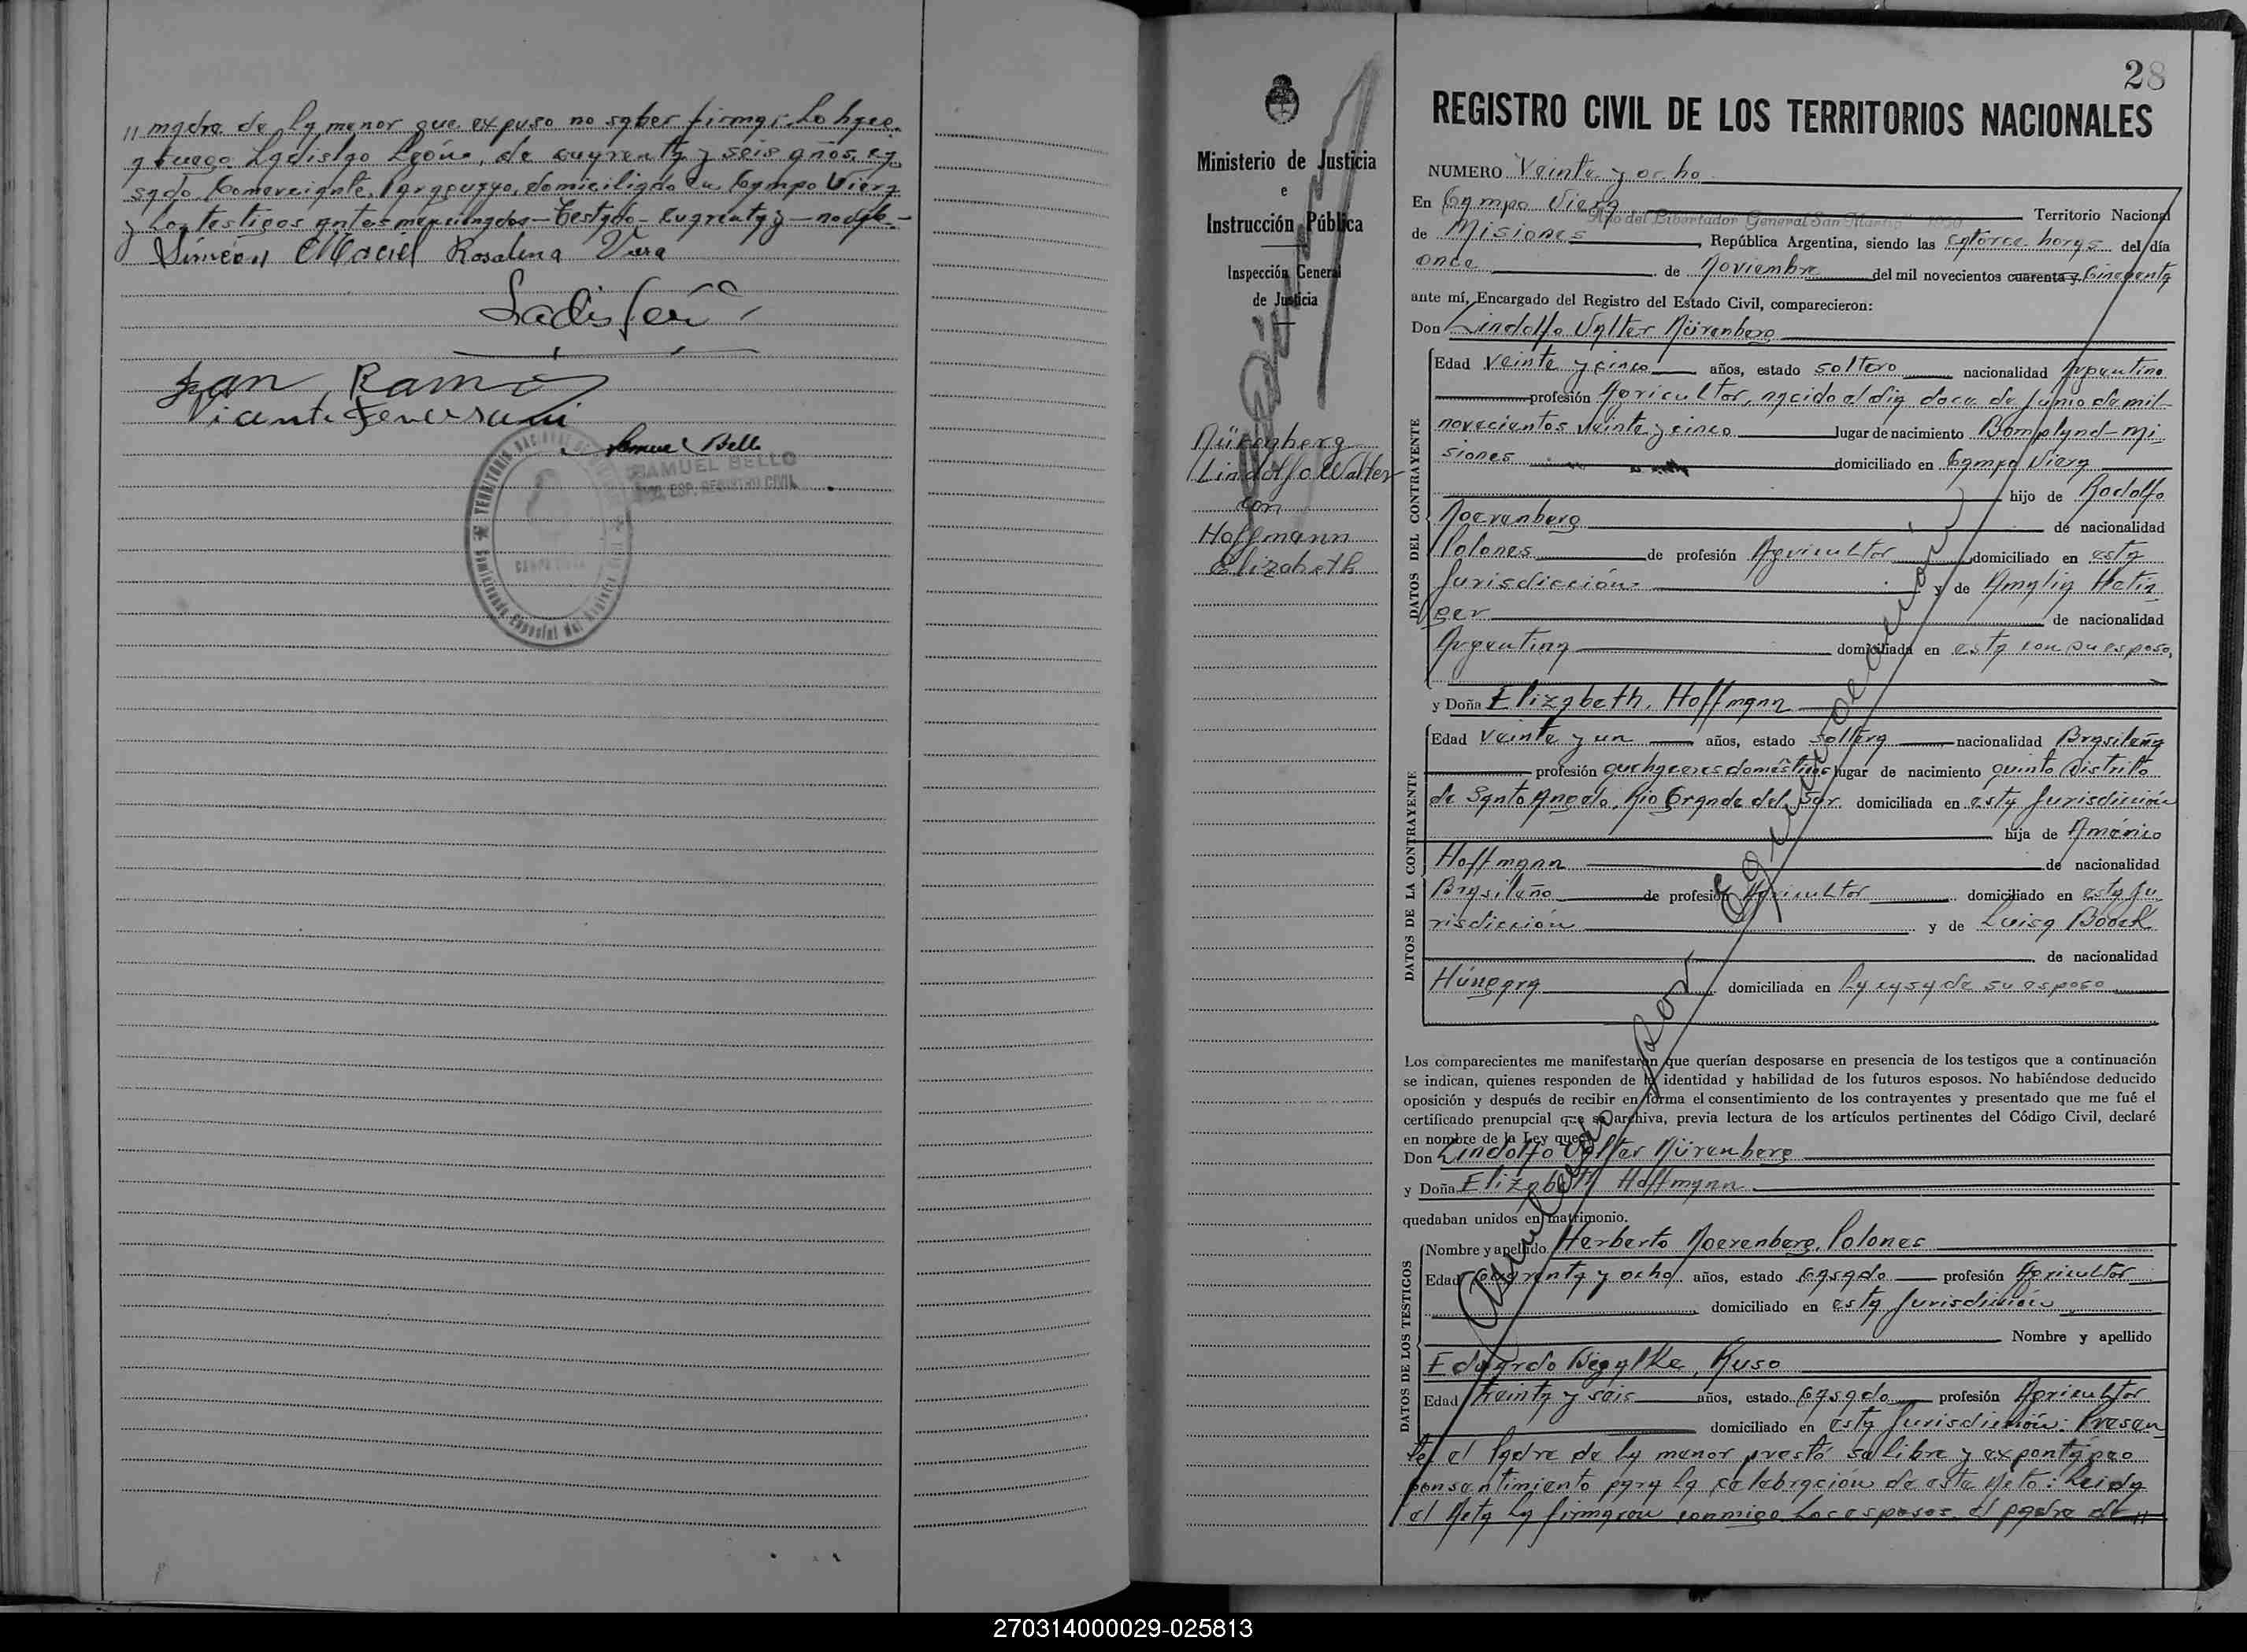 " madre de la menor que expuso no saber firmar Lo hace
a ruego Ladislao León, de cuarenta y seis años, ca
sado, Comerciante, Paraguayo, domiciliado en Campo Viera
y Los testigos antes mencionados - Testado - cuarenta y - no vale -
Simeón Maciel Rosalina Viera
Juan Ramos
Vicente
Samuel Bello
SAMUEL BELLO
ESP. REGISTRO CIVIL
28
Ministerio de Justicia
e
Instrucción Pública
Inspección General
de Justicia
Nürenberg
Lindolfo Walter
con
Hoffmann
Elizabeth
REGISTRO CIVIL DE LOS TERRITORIOS NACIONALES
NUMERO Veinte y ocho
Año del Libertador General San Martín 1950
En Campo Viera Territorio Nacional
de Misiones, República Argentina, siendo las catorce horas del día
once de Noviembre del mil novecientos cuarenta y Cincuenta
ante mí, Encargado del Registro del Estado Civil, comparecieron:
Don Lindolfo Valter Nürenberg
DATOS DEL CONTRAYENTE
Edad Veinte y cinco años, estado soltero nacionalidad Argentino
profesión Agricultor, nacido el día doce de Junio de mil
novecientos veinte y cinco lugar de nacimiento Bompland - Mi
siones domiciliado en Campo Viera
hijo de Rodolfo
Noerenberg de nacionalidad
Polones de profesión Agricultor domiciliado en esta
Jurisdicción y de Amalia Hetin
ger de nacionalidad
Argentina domiciliada en esta con su esposo,
y Doña Elizabeth, Hoffmann
DATOS DE LA CONTRAYENTE
Edad Veinte y un años, estado soltera nacionalidad Brasileña
profesión quehaceres domésticos lugar de nacimiento quinto Distrito
de Santo Angelo, Rio Grande del Sur domiciliada en esta Jurisdicción
hija de Américo
Hoffmann de nacionalidad
Brasileño de profesión Agricultor domiciliado en esta Ju
risdicción y de Luisa Boock
de nacionalidad
Húngara domiciliada en la casa de su esposo
Los comparecientes me manifestaron que querían desposarse en presencia de los testigos que a continuación
se indican, quienes responden de la identidad y habilidad de los futuros esposos. No habiéndose deducido
oposición y después de recibir en forma el consentimiento de los contrayentes y presentado que me fué el
certificado prenupcial que se archiva, previa lectura de los artículos pertinentes del Código Civil, declaré
en nombre de la Ley que:
Don Lindolfo Valter Nürenberg
y Doña Elizabeth Hoffmann
quedaban unidos en matrimonio.
DATOS DE LOS TESTIGOS
Nombre y apellido Herberto Noerenberg, Polones
Edad Cuarenta y ocho años, estado Casado profesión Agricultor
domiciliado en esta Jurisdicción
Nombre y apellido
Eduardo Bigalke, Ruso
Edad treinta y seis años, estado Casado profesión Agricultor
domiciliado en esta Jurisdicción: Presen
te el Padre de la menor prestó su libre y expontáneo
consentimiento para la celebración de este Acto: Leida
el Acta La firmaron conmigo Los esposos, el padre de "
Anulado por
270314000029-025813